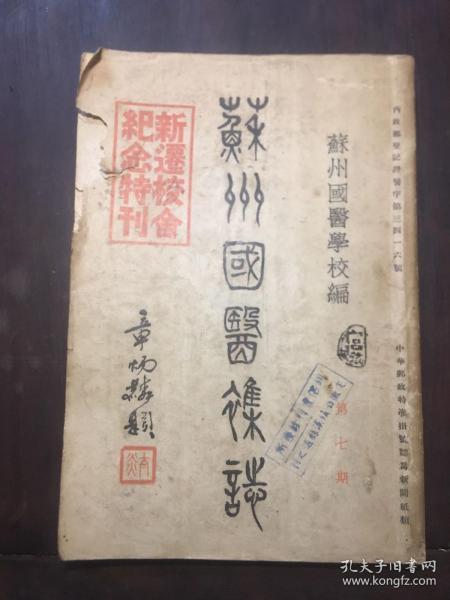 內政部登記證警字第三四一六號
中華郵政特准掛號認為新聞紙類
蘇州國醫學校編
第七期
蘇州國醫雜誌
新遷校舍
紀念特刊
章炳麟題
孔夫子旧书网
www.kongfz.com